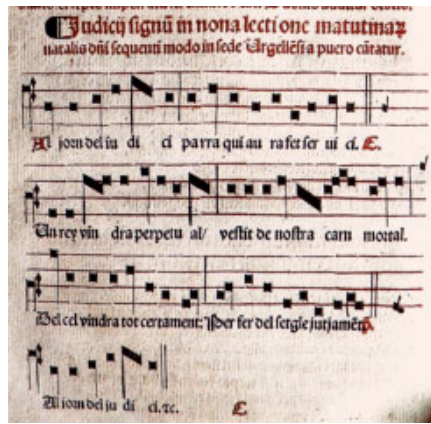 Judicij signū in nona lectione matutinaꝝ
natalis dn̄i sequenti modo in sede Urgellēsi a puero cātatur.
Al jorn del iu di ci parra qui au ra fet ser ui ci. ℟.
Un rey vin dra perpetu al/ vestit de nostra carn mortal.
Del cel vindra tot certament: Per fer del setgle jutjamēt
Al jorn del ju di ci. ⁊c.